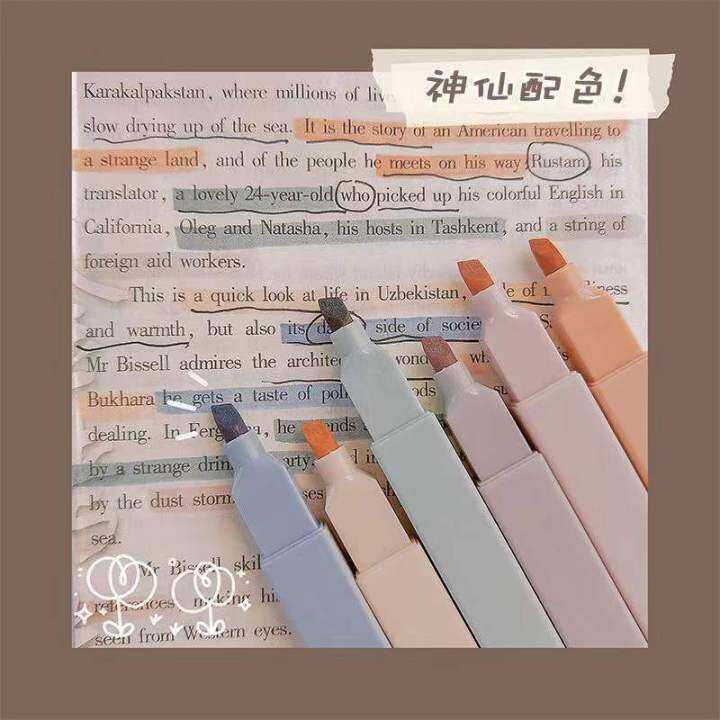 神仙配色!
Karakalpakstan, where millions of
slow drying up of the sea. It is the story of an American travelling to
a strange land, and of the people he meets on his way, Rustam, his
translator, a lovely 24-year-old who picked up his colorful English in
California, Oleg and Natasha, his hosts in Tashkent, and a string of
foreign aid workers.
This is a quick look at life in Uzbekistan,
and warmth, but also its side of
Mr Bissell admires the
Bukhara he gets a taste of
dealing. In he
by a strange
by the dust storm
sea.
Mr Bissell
references, making
seen from Western eyes.